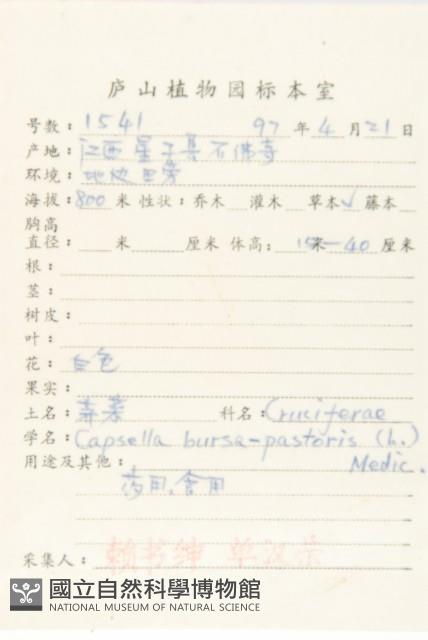 庐山植物园标本室
号数：1541 97 年 4 月 21 日
产地：江西星子县石佛寺
环境：地边田旁
海拔：800 米 性状：乔木 灌木 草本✓ 藤本
胸高
直径： 米 厘米 体高：15米—40 厘米
根：
茎：
树皮：
叶：
花：白色
果实：
土名：荠菜 科名：Cruciferae
学名：Capsella bursa-pastoris (L.)
用途及其他： Medic.
药用、食用
采集人：赖书绅 单汉荣
國立自然科學博物館
NATIONAL MUSEUM OF NATURAL SCIENCE